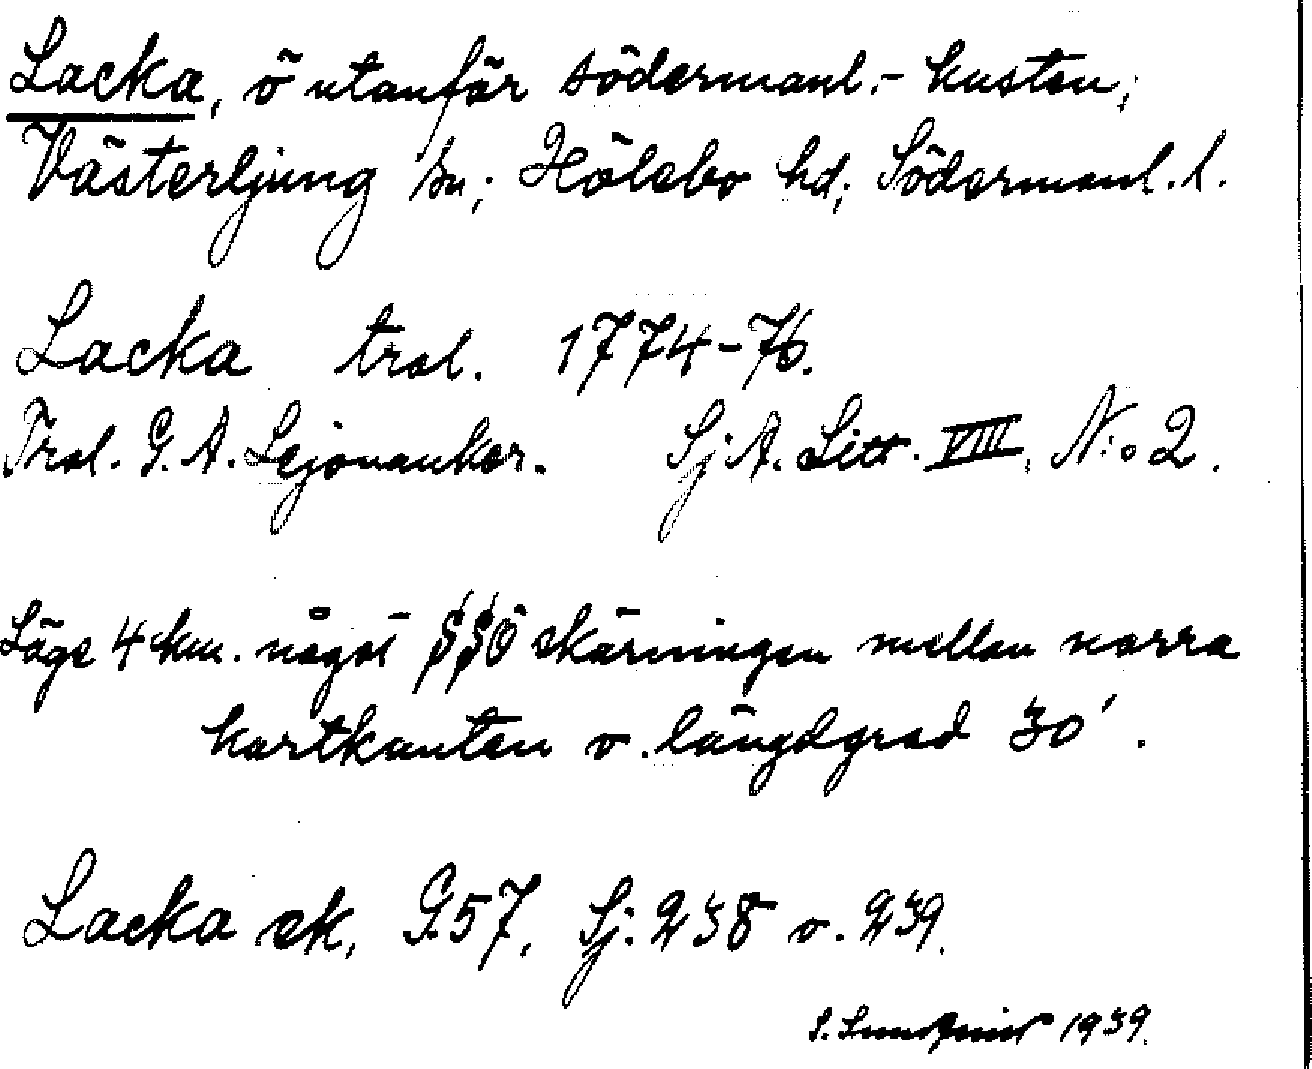 Lacka, ö utanför södermanl.- kusten,
Västerljung sn; Hölebo hd; Södermanl. l.
Lacka trol. 1774-76.
Trol. G. A. Lejonanker. SjA. Litt. VIII, N:o 2.
Läge 4 km. något SSÖ skärningen mellan norra
kartkanten o. längdgrad 30'.
Lacka ek. G57, Sj. 238 o. 239.
S. Lundqvist 1939.